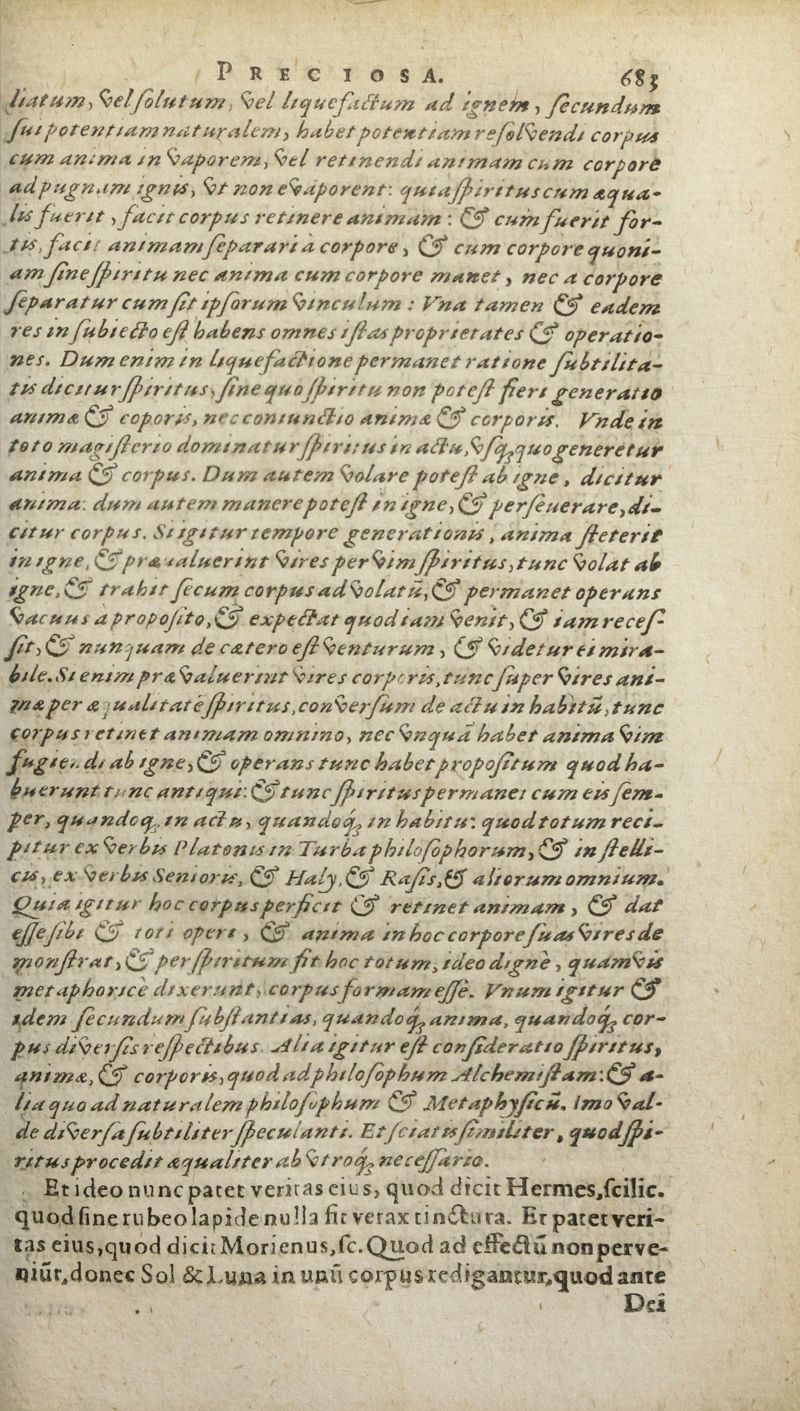 PRECIOSA. 685
liatum, vel solutum, vel liquefactum ad ignem, secundum
sui potentiam naturalem, habet potentiam resolvendi corpus
cum anima in vaporem, vel retinendi animam cum corpore
ad pugnam ignis, vt non evaporent: quia spiritus cum æqua-
lis fuerit, facit corpus retinere animam: & cum fuerit for-
tis, facit animam separari à corpore, & cum corpore quoni-
am sine spiritu nec anima cum corpore manet, nec a corpore
separatur cum sit ipsorum vinculum: Vna tamen & eadem
res in subiecto est habens omnes istas proprietates & operatio-
nes. Dum enim in liquefactione permanet ratione subtilita-
tis dicitur spiritus, sine quo spiritu non potest fieri generatio
animæ & coporis, nec coniunctio animæ & corporis. Vnde in
toto magisterio dominatur spiritus in actu, vsq; quo generetur
anima & corpus. Dum autem volare potest ab igne, dicitur
anima: dum autem manere potest in igne, & perseuerare, di-
citur corpus. Si igitur tempore generationis, anima steterit
in igne, & præualuerint vires per vim spiritus, tunc volat ab
igne, & trahit secum corpus ad volatū, & permanet operans
vacuus a proposito, & expectat quod iam venit, & iam reces-
sit, & nunquam de cætero est venturum, & videtur ei mira-
bile. Si enim prævaluerint vires corporis, tunc super vires ani-
mæ per æqualitatē spiritus, conversum de actu in habitū, tunc
corpus retinet animam omnino, nec vnquā habet anima vim
fugiendi ab igne, & operans tunc habet propositum quod ha-
buerunt tunc antiqui: & tunc spiritus permanet cum eis sem-
per, quandoq; in actu, quandoq; in habitu: quod totum reci-
pitur ex verbis Platonis in Turba philosophorum, & in stelli-
cis, ex verbis Senioris, & Haly, & Rasis, & aliorum omnium.
Quia igitur hoc corpus perficit & retinet animam, & dat
esse sibi & toti operi, & anima in hoc corpore suas vires de
monstrat, & per spiritum fit hoc totum, ideo digne, quàmvis
metaphorice dixerunt, corpus formam esse. Vnum igitur &
idem secundum substantias, quandoq; anima, quandoq; cor-
pus diversis respectibus. Alia igitur est consideratio spiritus,
animæ, & corporis, quod ad philosophum Alchemistam: & a-
lia quo ad naturalem philosophum & Metaphysicū. Imo val-
de diversa subtiliter speculanti. Et sciatis similiter, quod spi-
ritus procedit æqualiter ab vtroq; necessario.
Et ideo nunc patet veritas eius, quod dicit Hermes, scilic.
quod sine rubeo lapide nulla fit verax tinctura. Et patet veri-
tas eius, quod dicit Morienus, sc. Quod ad effectū non perve-
niūr, donec Sol & Luna in unū corpus redigantur, quod ante
Dei